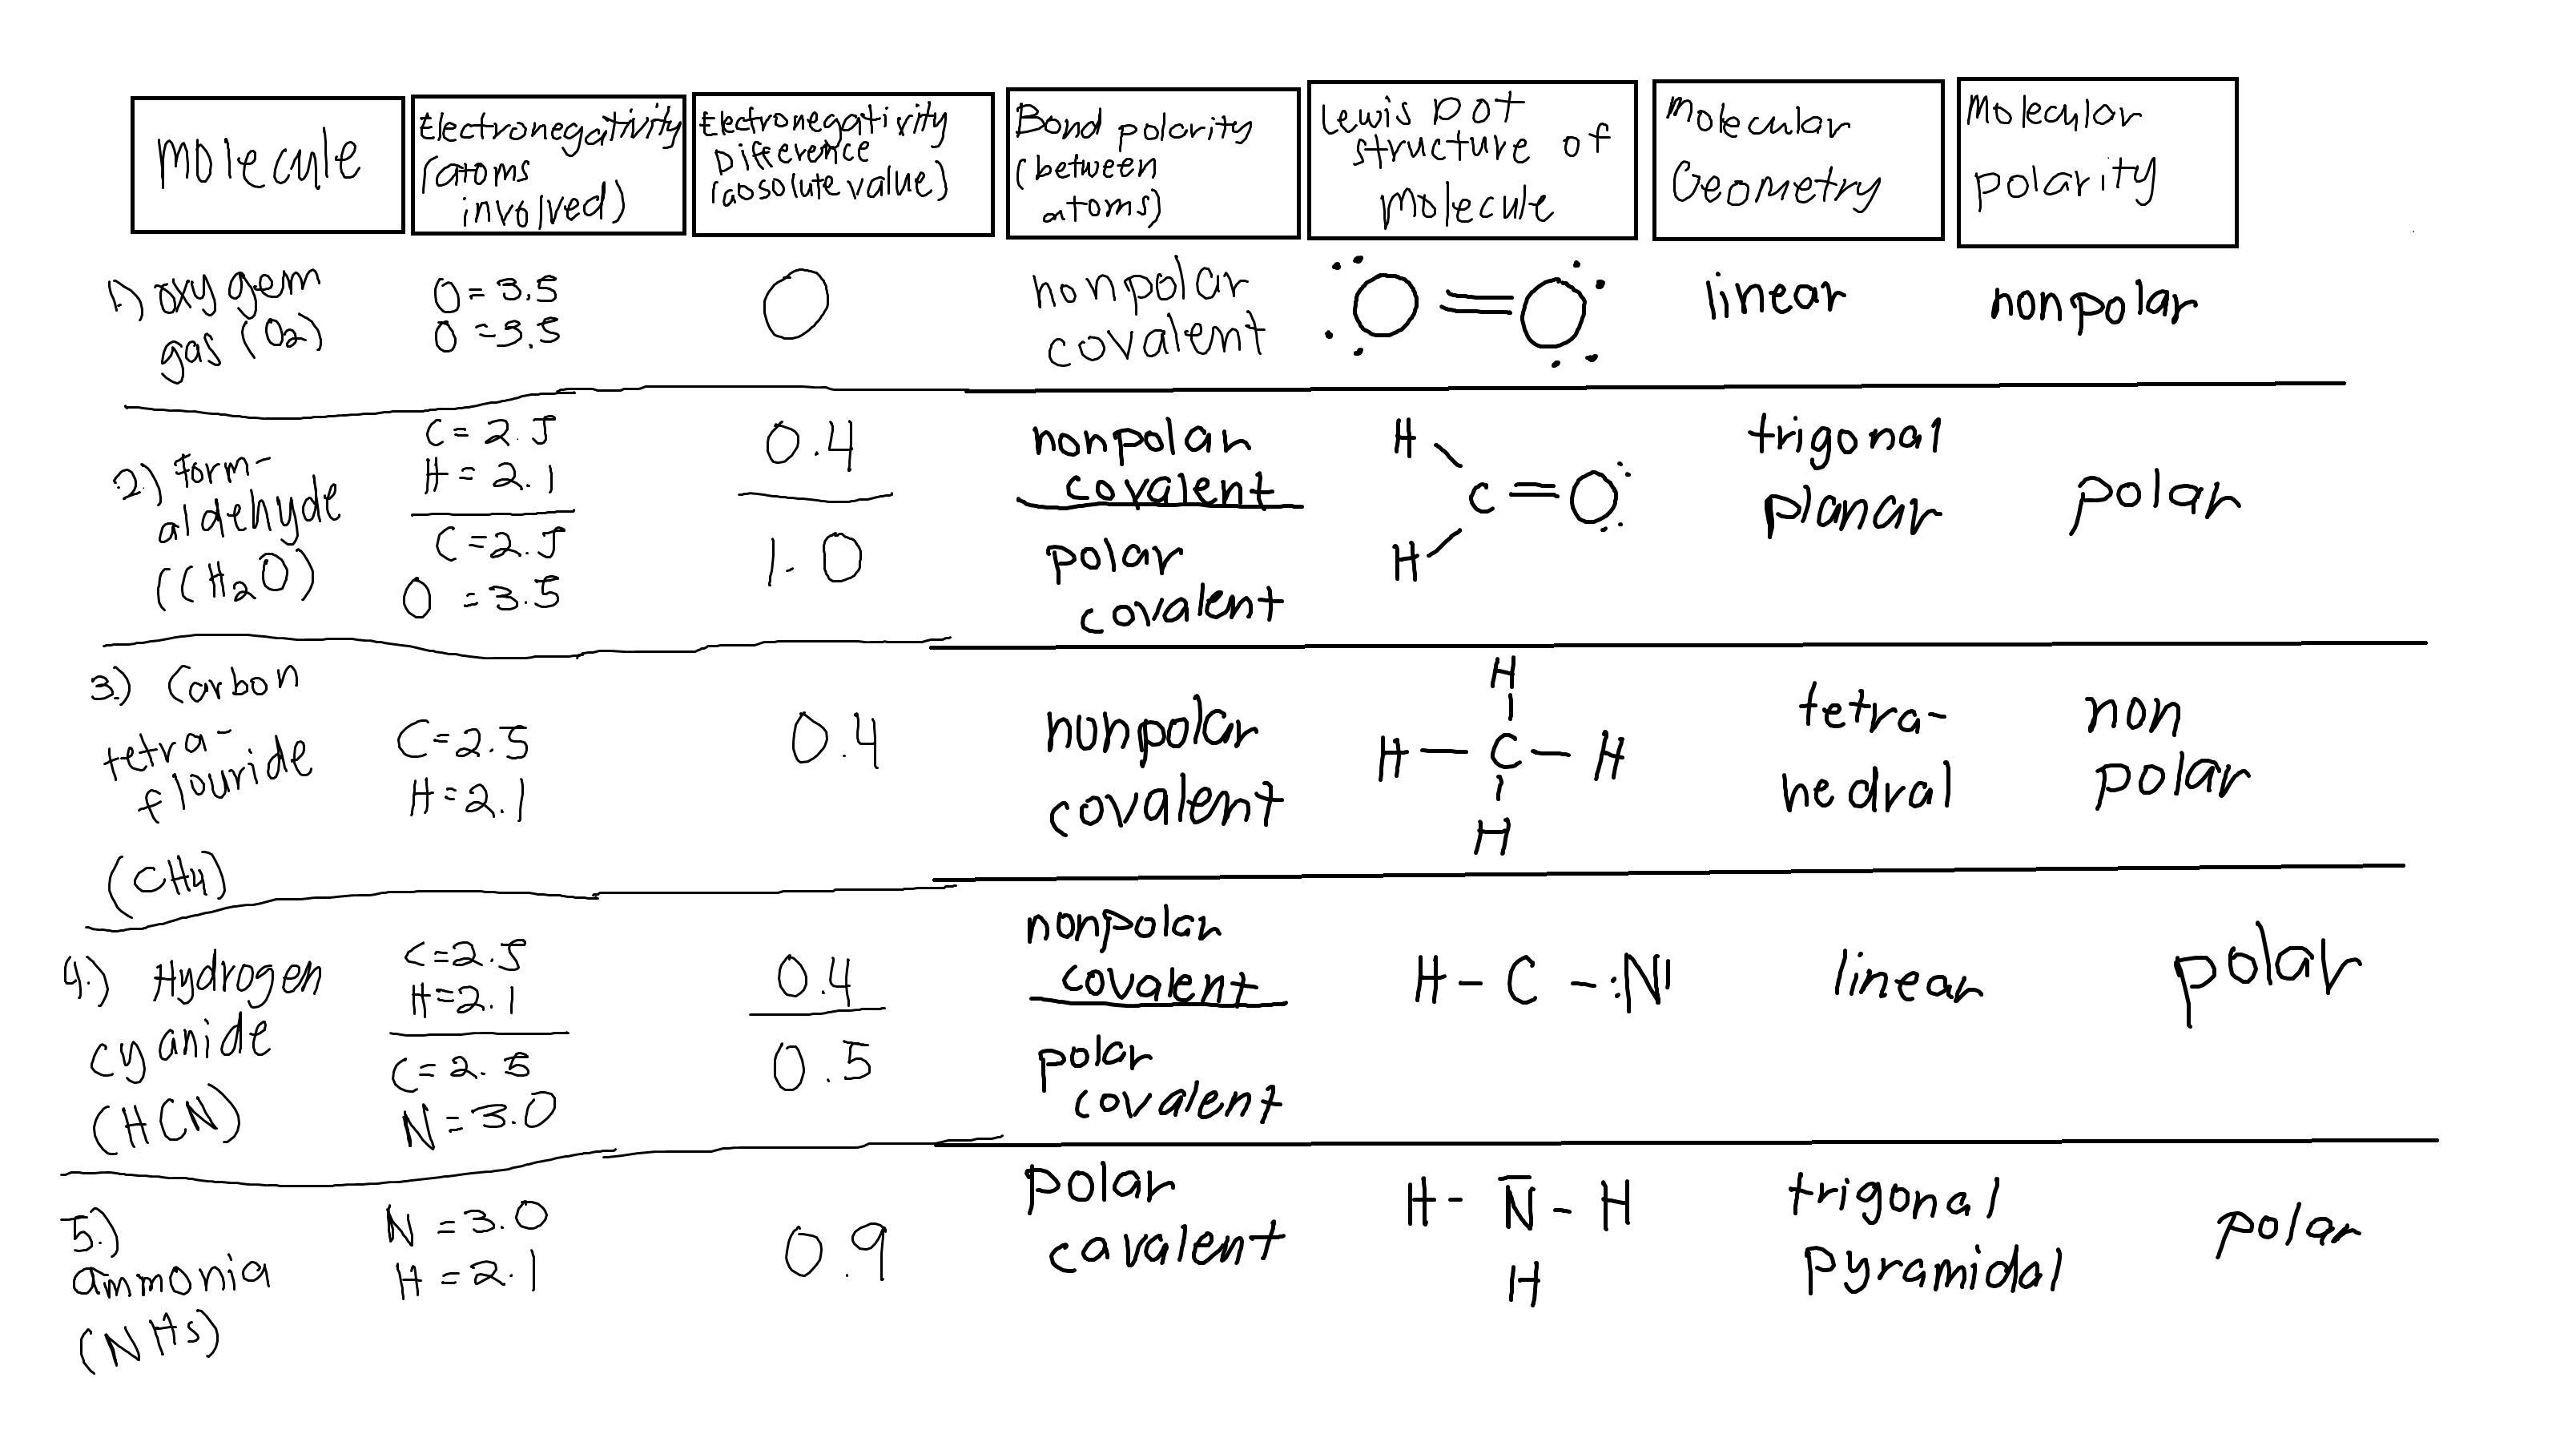 Molecule
Electronegativity
(atoms
involved)
Electronegativity
Difference
(absolute value)
Bond polarity
(between
atoms)
Lewis Dot
structure of
Molecule
Molecular
Geometry
Molecular
polarity
1.) oxygem
gas (O2)
O = 3.5
O = 3.5
0
nonpolar
covalent
O = O
linear
nonpolar
2.) Form-
aldehyde
(CH2O)
C = 2.5
H = 2.1
C = 2.5
O = 3.5
0.4
1.0
nonpolar
covalent
polar
covalent
H
C = O
H
trigonal
planar
polar
3.) Carbon
tetra-
flouride
(CH4)
C = 2.5
H = 2.1
0.4
nunpolar
covalent
H
H — C — H
H
tetra-
hedral
non
polar
4.) Hydrogen
cyanide
(HCN)
C = 2.5
H = 2.1
C = 2.5
N = 3.0
0.4
0.5
nonpolar
covalent
polar
covalent
H - C - :N
linear
polar
5.)
ammonia
(NHs)
N = 3.0
H = 2.1
0.9
polar
cavalent
H - N - H
H
trigonal
pyramidal
polar